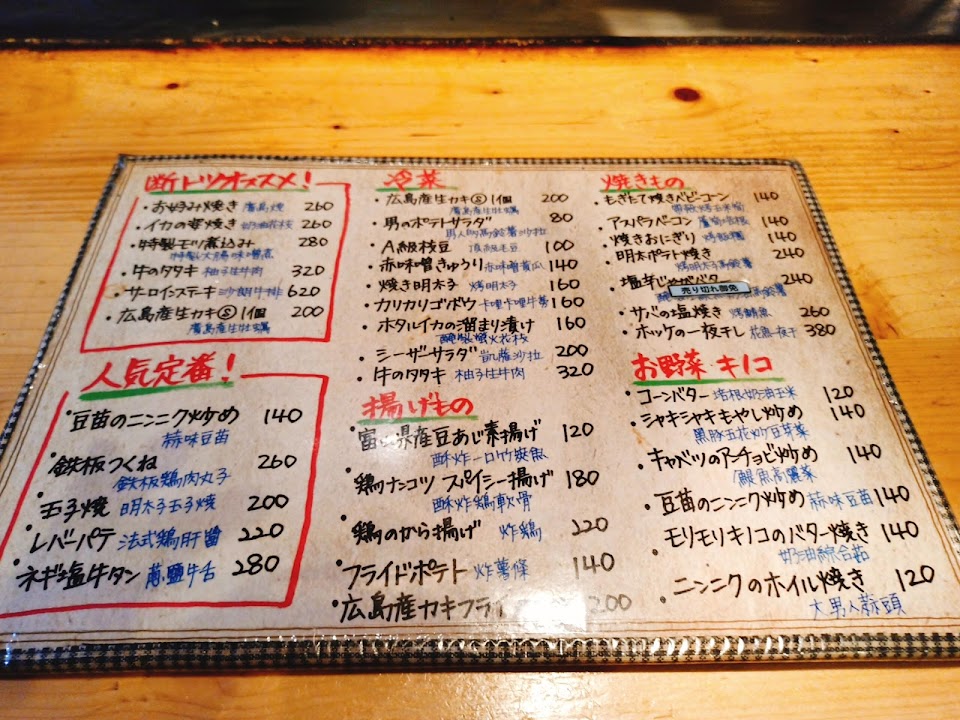 断トツオススメ!
・お好み焼き 廣島燒 260
・イカの姿焼き 奶油花枝 260
・特製モツ煮込み 280
特製大腸味噌煮
・牛のタタキ 柚子生牛肉 320
・サーロインステーキ 沙朗牛排 620
・広島産生カキⓈ 1個 200
廣島産生牡蠣
人気定番!
・豆苗のニンニク炒め 140
蒜味豆苗
・鉄板つくね 260
鉄板鶏肉丸子
・玉子焼 明太子玉子燒 200
・レバーパテ 法式鶏肝醬 220
・ネギ塩牛タン 蔥鹽牛舌 280
冷菜
・広島産生カキⓈ 1個 200
廣島産生牡蠣
・男のポテトサラダ 80
男人的馬鈴薯沙拉
・A級枝豆 頂級毛豆 100
・赤味噌きゅうり 赤味噌黄瓜 140
・焼き明太子 烤明太子 160
・カリカリゴボウ 卡哩卡哩牛蒡 160
・ホタルイカの溜まり漬け 160
醃製螢火花枝
・シーザーサラダ 凱薩沙拉 200
・牛のタタキ 柚子生牛肉 320
揚げもの
・富山県産豆あじ素揚げ 120
酥炸一口竹莢魚
・鶏ナンコツ スパイシー揚げ 180
酥炸鶏軟骨
・鶏のから揚げ 炸鶏 220
・フライドポテト 炸薯條 140
・広島産カキフライ 200
焼きもの
・もぎたて焼きベビーコーン 140
・アスパラベーコン 蘆筍培根 140
・焼きおにぎり 烤飯糰 140
・明太ポテト焼き 240
烤明太子馬鈴薯
・塩辛じゃがバター 240
売り切れ御免
・サバの塩焼き 烤鯖魚 260
・ホッケの一夜干し 花魚一夜干 380
お野菜 キノコ
・コーンバター 培根奶油玉米 120
・シャキシャキもやし炒め 140
黒豚五花炒豆芽菜
・キャベツのアンチョビ炒め 140
鯷魚高麗菜
・豆苗のニンニク炒め 蒜味豆苗 140
・モリモリキノコのバター焼き 140
奶油綜合菇
・ニンニクのホイル焼き 120
大男人蒜頭